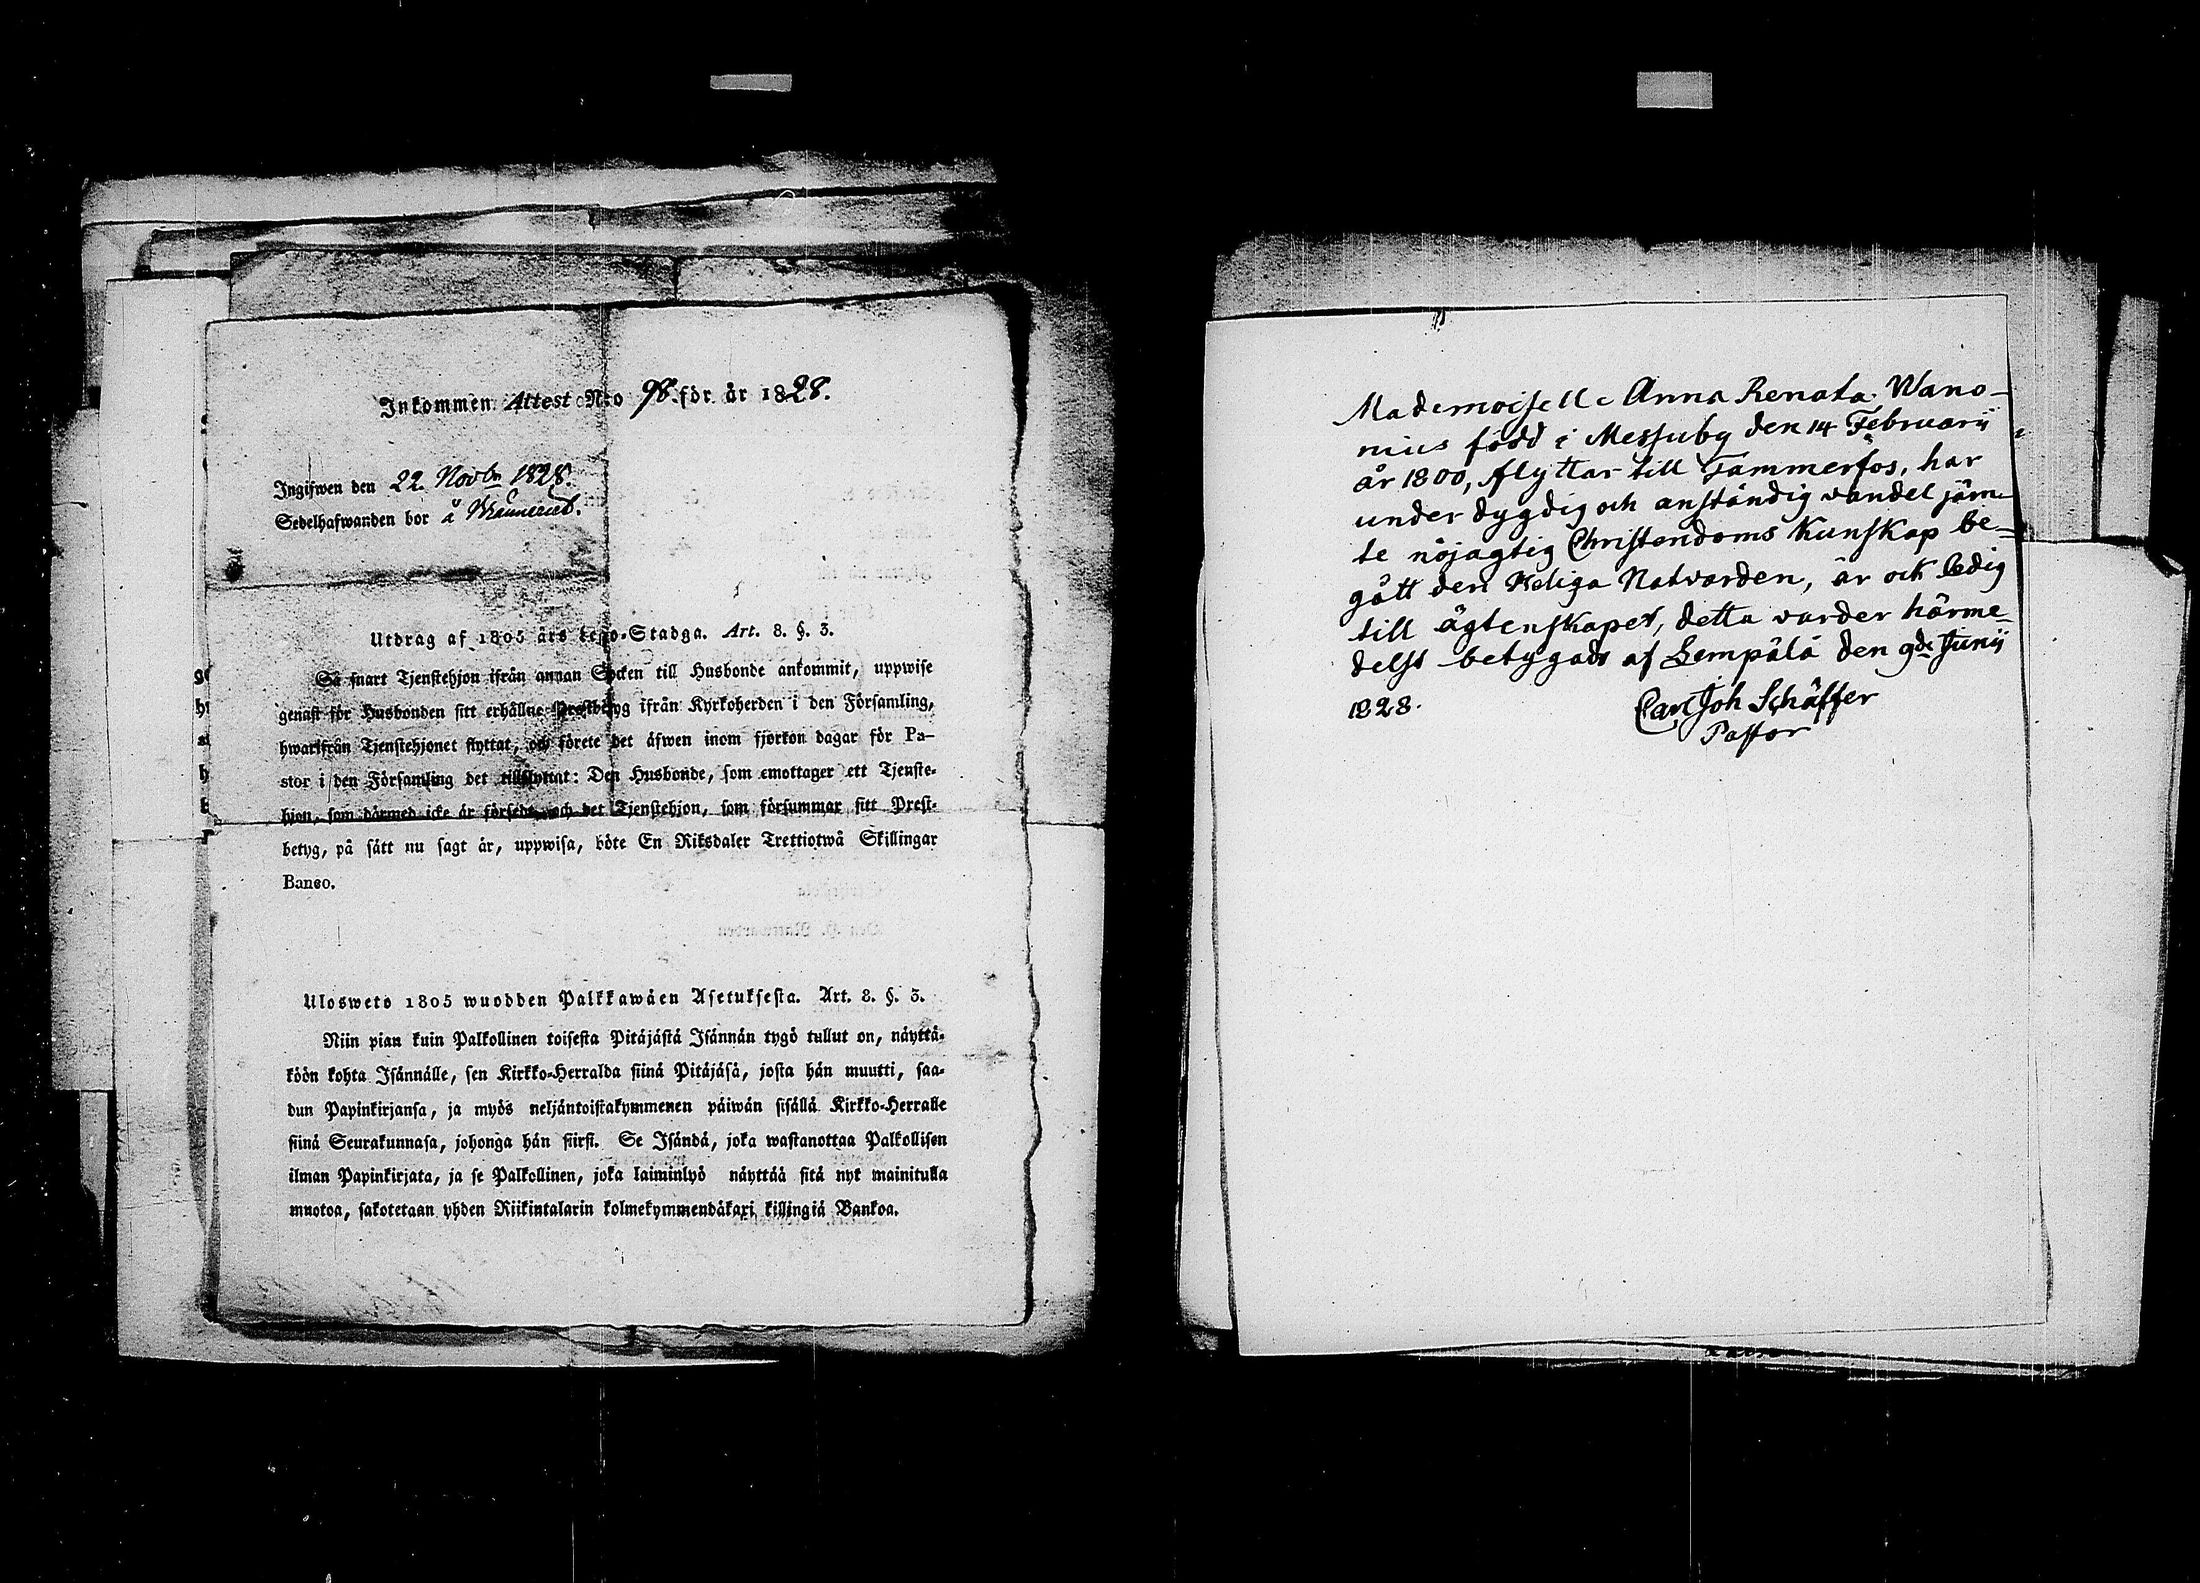 Inkommen Attest Nro 98 för år 1828.
Ingifwen den 22 Novbr 1828.
Sedelhafwanden bor å
Utdrag af 1805 års Lego-Stadga. Art. 8. §. 3.
Så snart Tjenstehjon ifrån annan Socken till Husbonde ankommit, uppwise
genast för Husbonden sitt erhållne Prestbetyg ifrån Kyrkoherden i den Församling,
hwarifrån Tjenstehjonet flyttat, och förete det äfwen inom fjorton dagar för Pa-
stor i den Församling det tillflyttat: Den Husbonde, som emottager ett Tjenste-
hjon, som därmed icke är försedt, och det Tjenstehjon, som försummar sitt Prest-
betyg, på sätt nu sagt är, uppwisa, böte En Riksdaler Trettiotwå Skillingar
Banco.
Ulosweto 1805 wuodden Palkkawäen Asetuksesta. Art. 8. §. 3.
Niin pian kuin Palkollinen toisesta Pitäjästä Isännän tygö tullut on, näyttä-
köön kohta Isännälle, sen Kirkko-Herralda siinä Pitäjäsä, josta hän muutti, saa-
dun Papinkirjansa, ja myös neljäntoistakymmenen päiwän sisällä Kirkko-Herralle
siinä Seurakunnasa, johonga hän siirsi. Se Isändä, joka wastanottaa Palkollisen
ilman Papinkirjata, ja se Palkollinen, joka laiminlyö näyttää sitä nyt mainitulla
muotoa, sakotetaan yhden Riikintalarin kolmekymmendäkaxi killingiä Bankoa.
Mademoiselle Anna Renata Wano-
nius född i Messuby den 14 Februarii
år 1800, flyttar till Tammerfos, har
under dygdig och anständig vandel jäm-
te nöjagtig Christendoms Kunskap be-
gått den Heliga Natvarden, är ock ledig
till ägtenskaper, detta varder härme-
delst betygadt af Lempälä den 9de Junii
1828.
Carl Joh Schäffer
Pastor